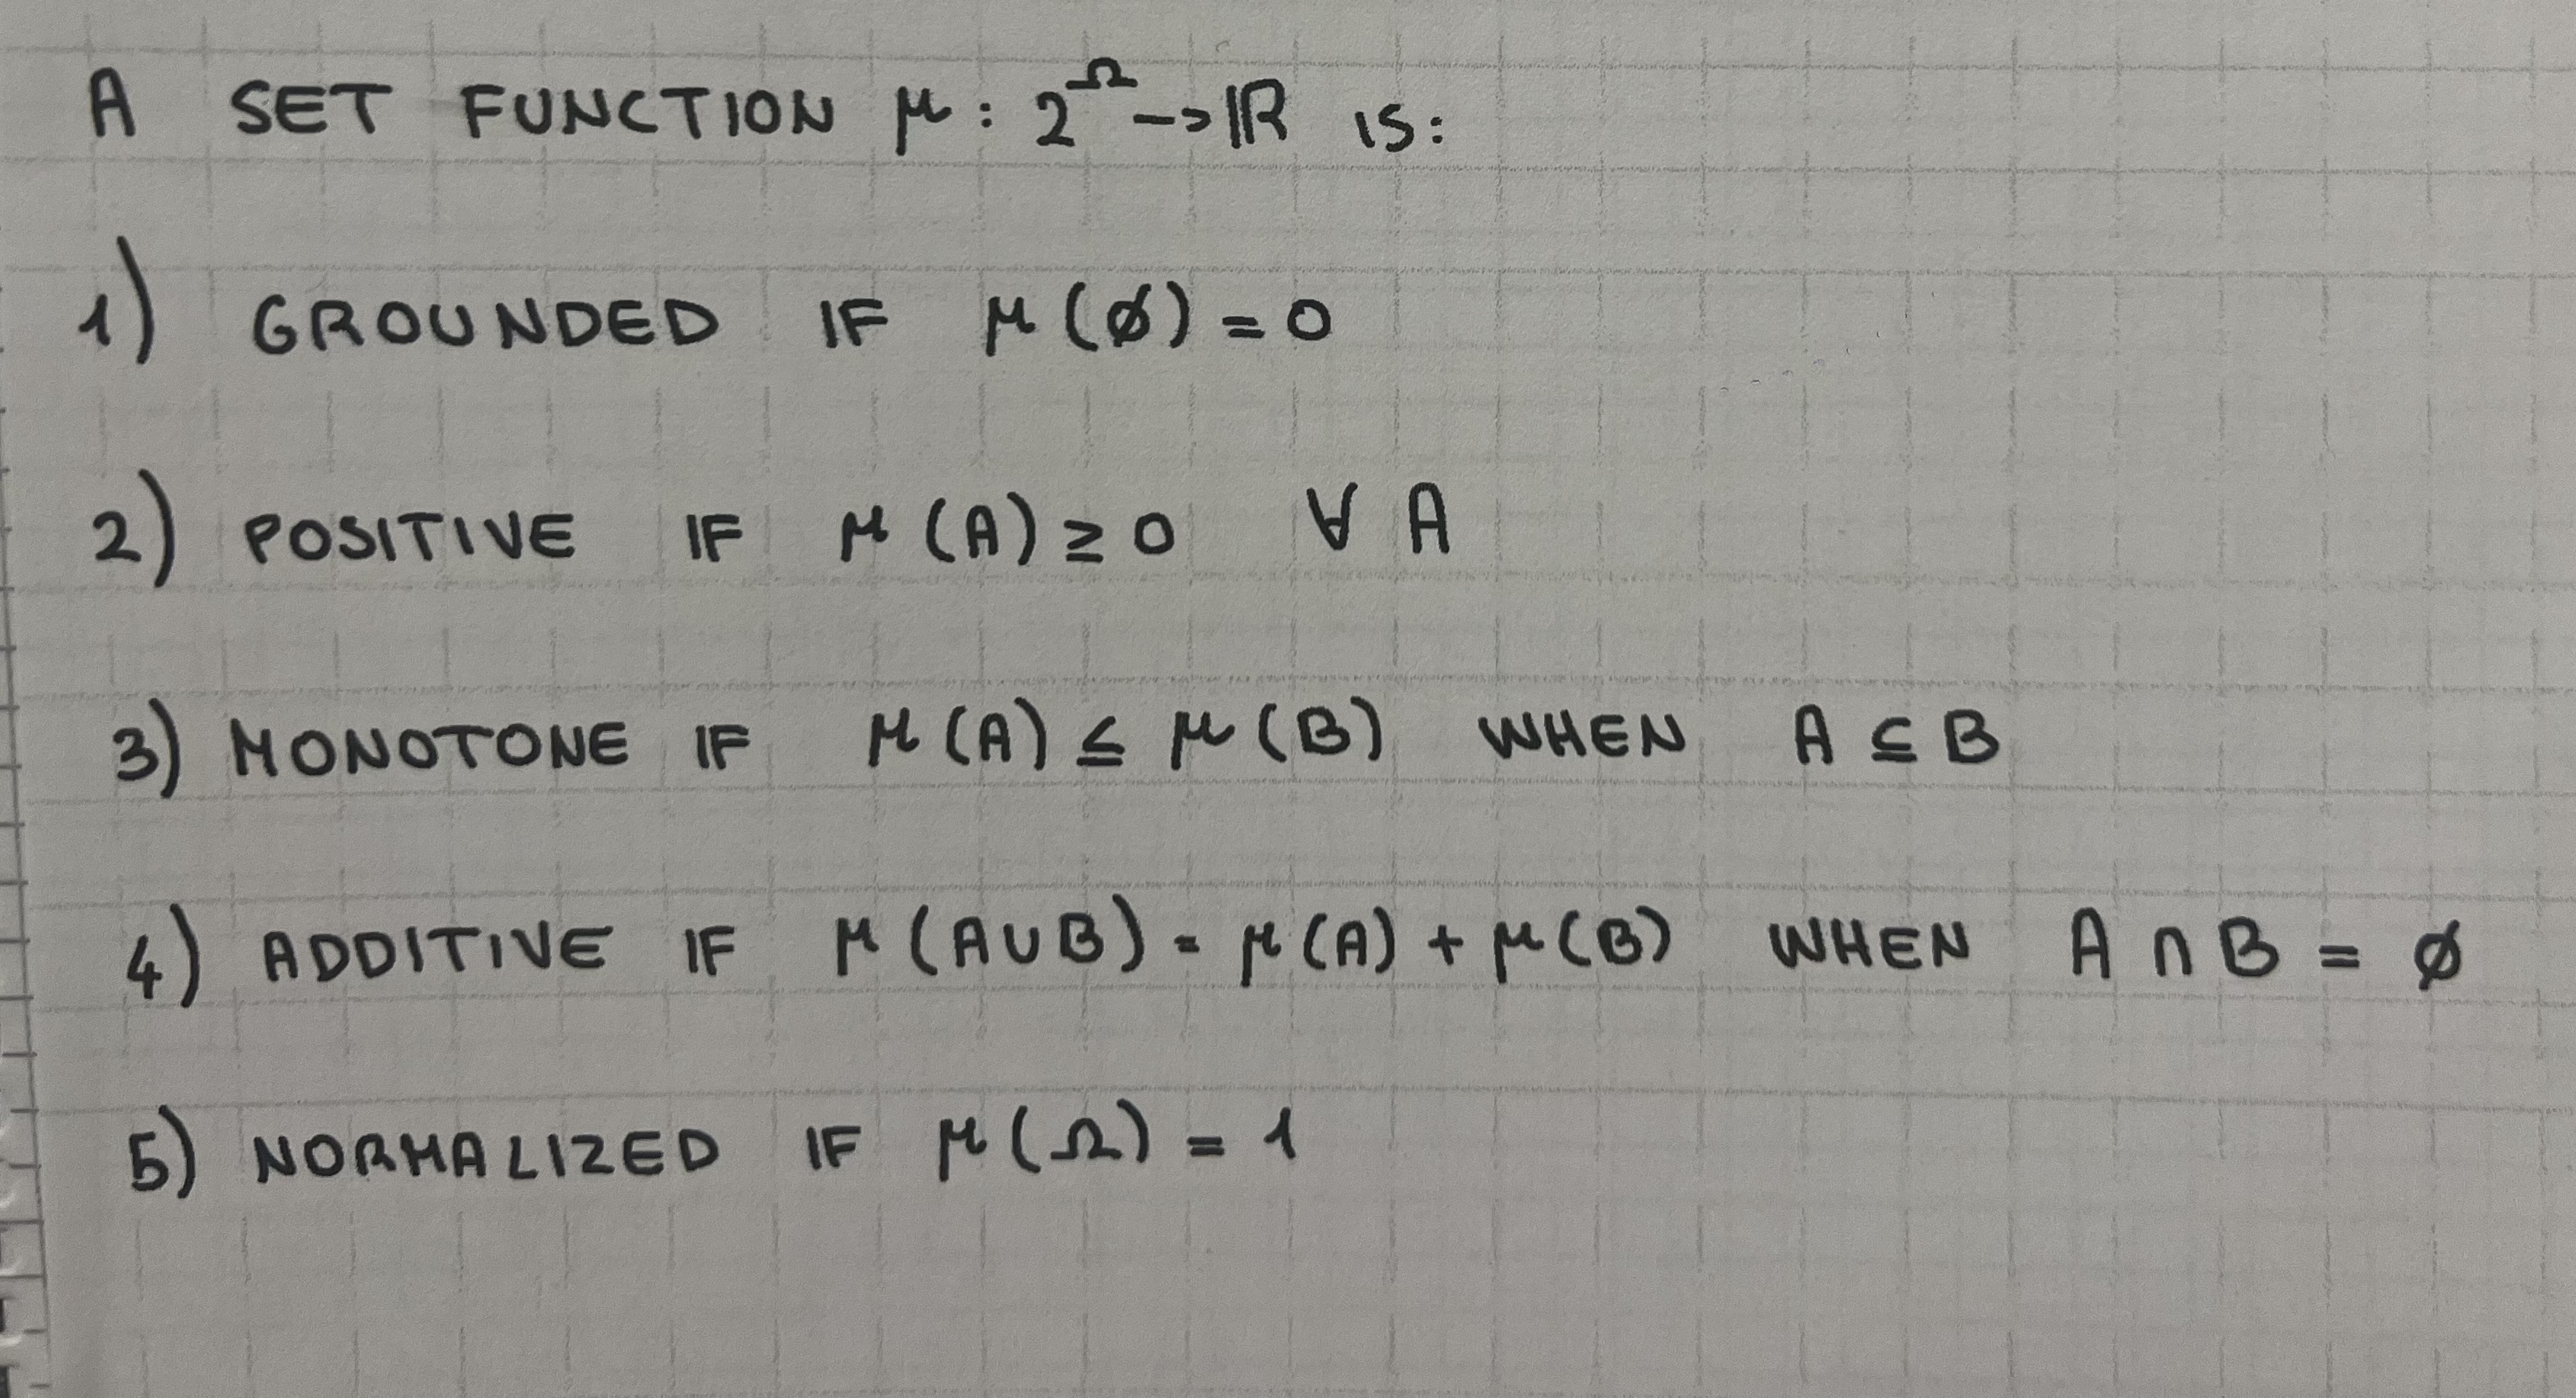 A SET FUNCTION μ: 2^Ω → ℝ IS:
1) GROUNDED IF μ(∅) = 0
2) POSITIVE IF μ(A) ≥ 0 ∀ A
3) MONOTONE IF μ(A) ≤ μ(B) WHEN A ⊆ B
4) ADDITIVE IF μ(A∪B) = μ(A) + μ(B) WHEN A ∩ B = ∅
5) NORMALIZED IF μ(Ω) = 1